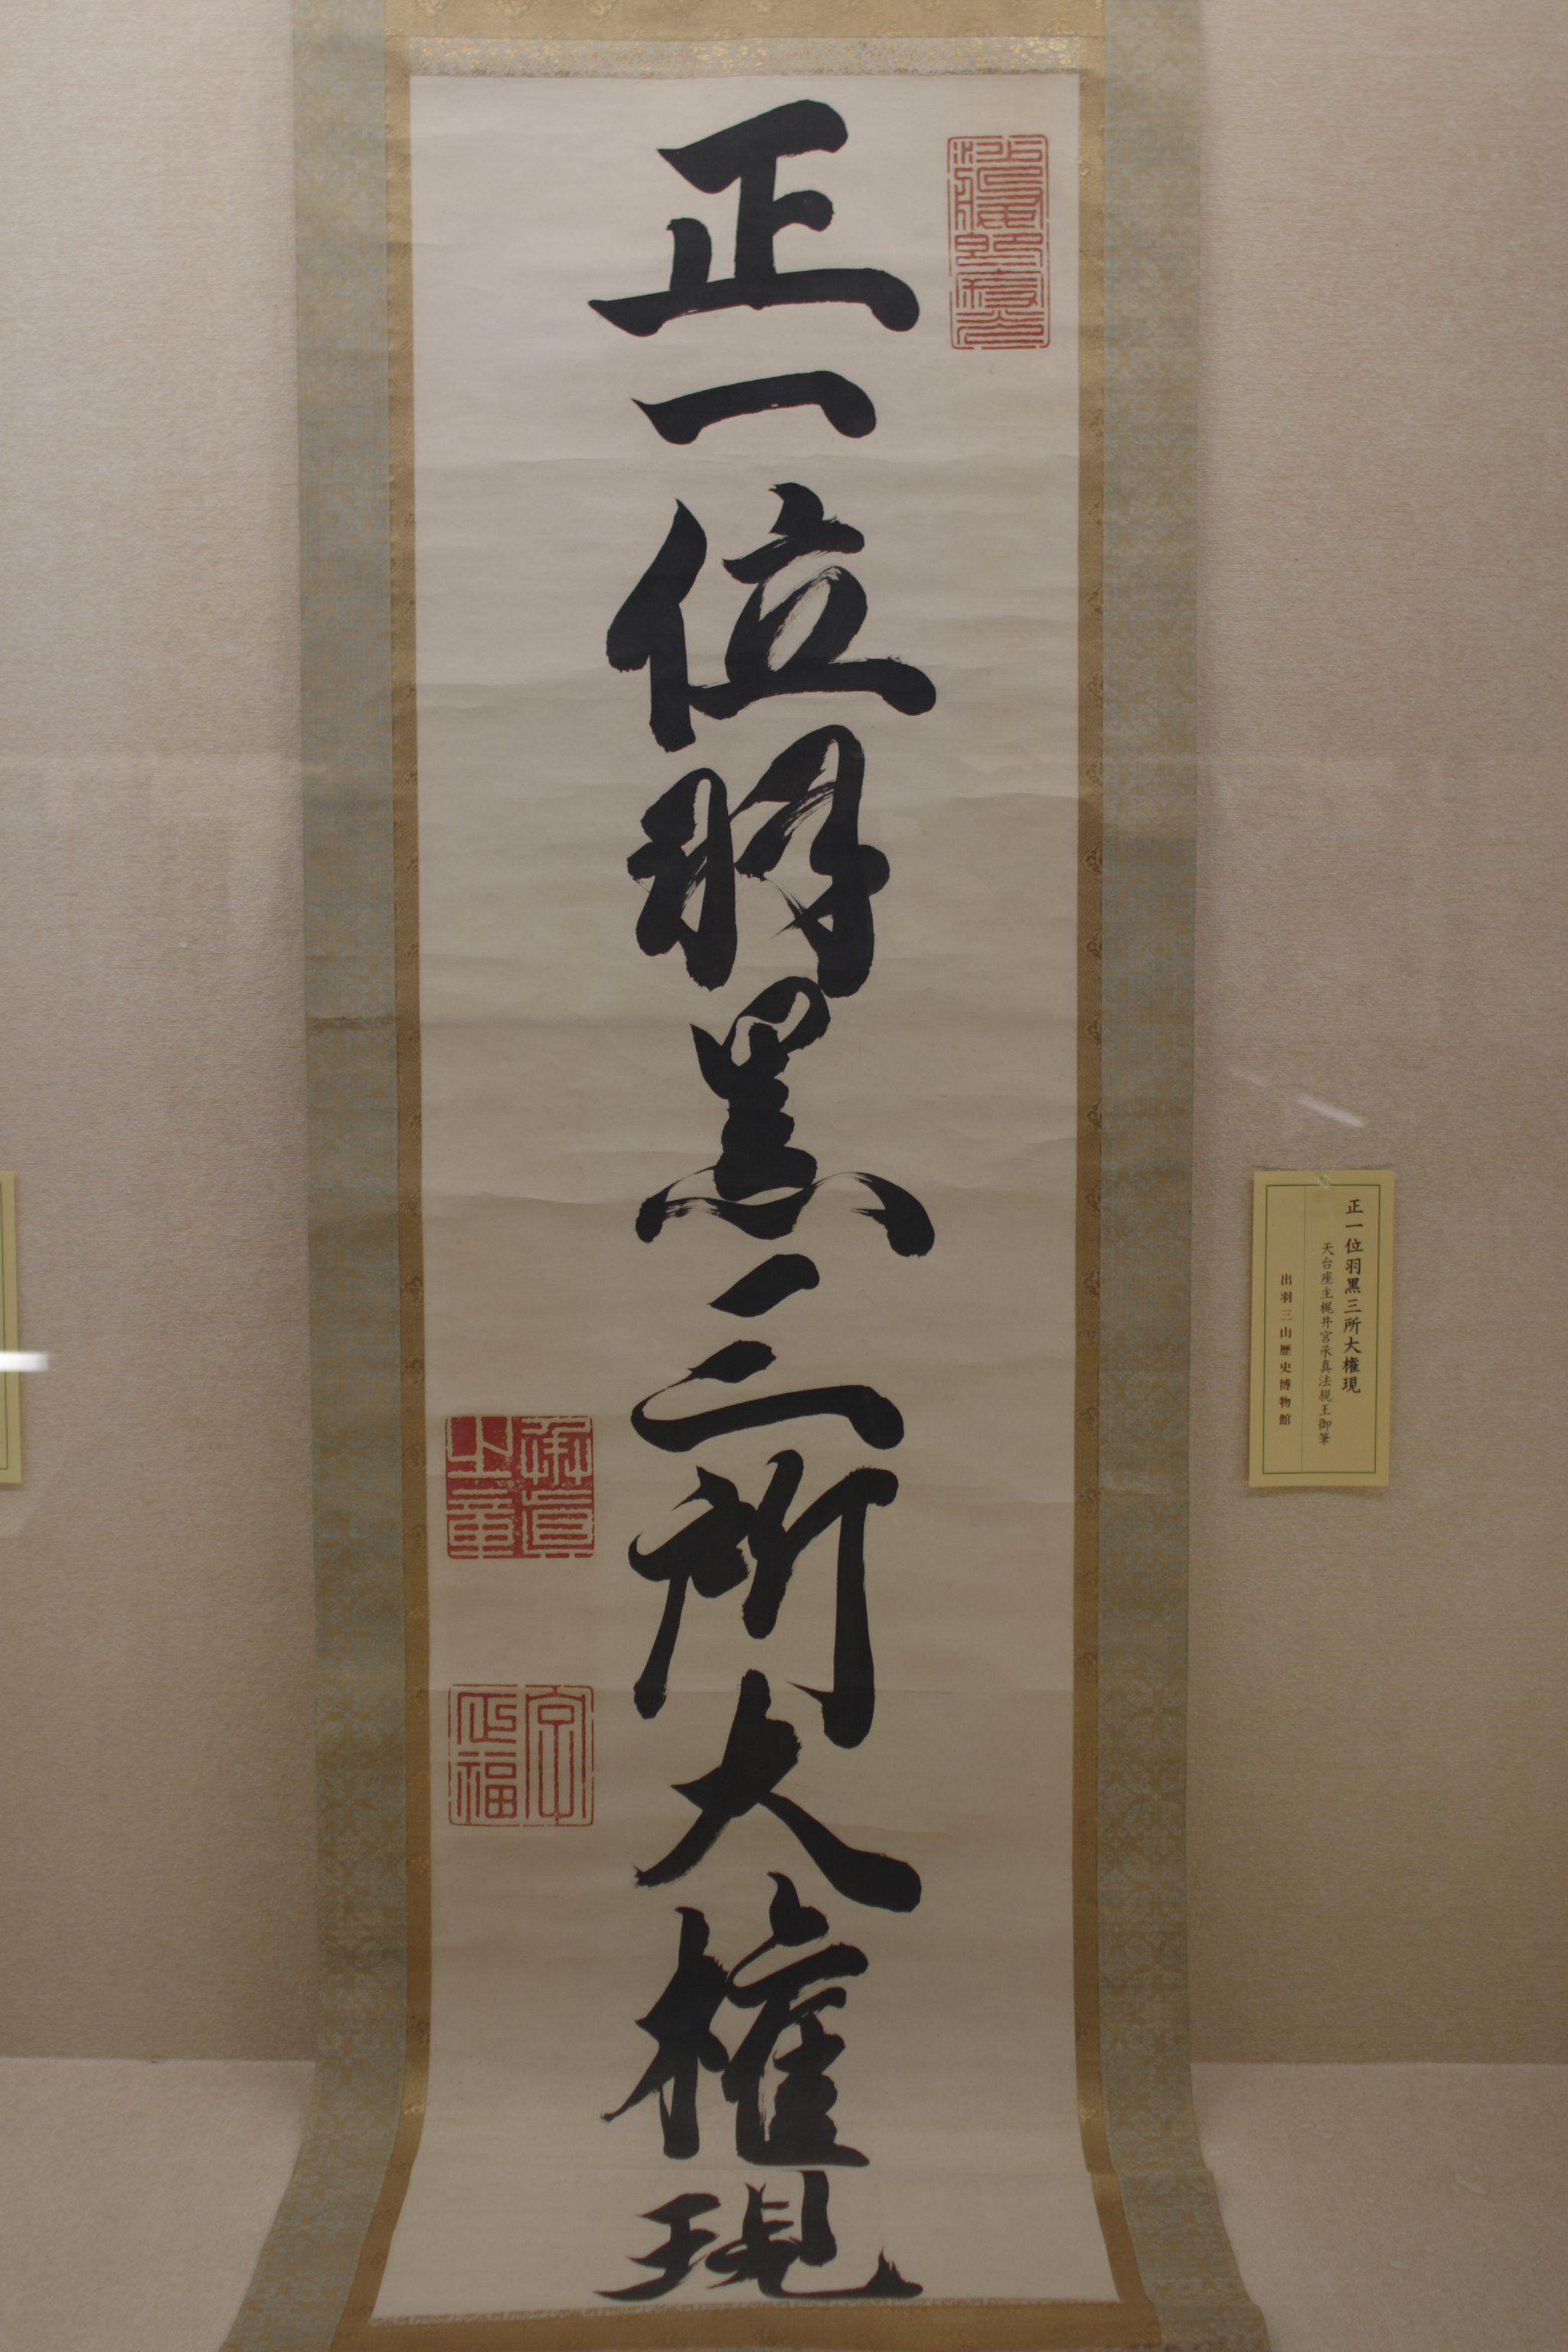 正一位羽黒三所大権現
承真
之章
正一位羽黒三所大権現
天台座主梶井宮承真法親王御筆
出羽三山歴史博物館